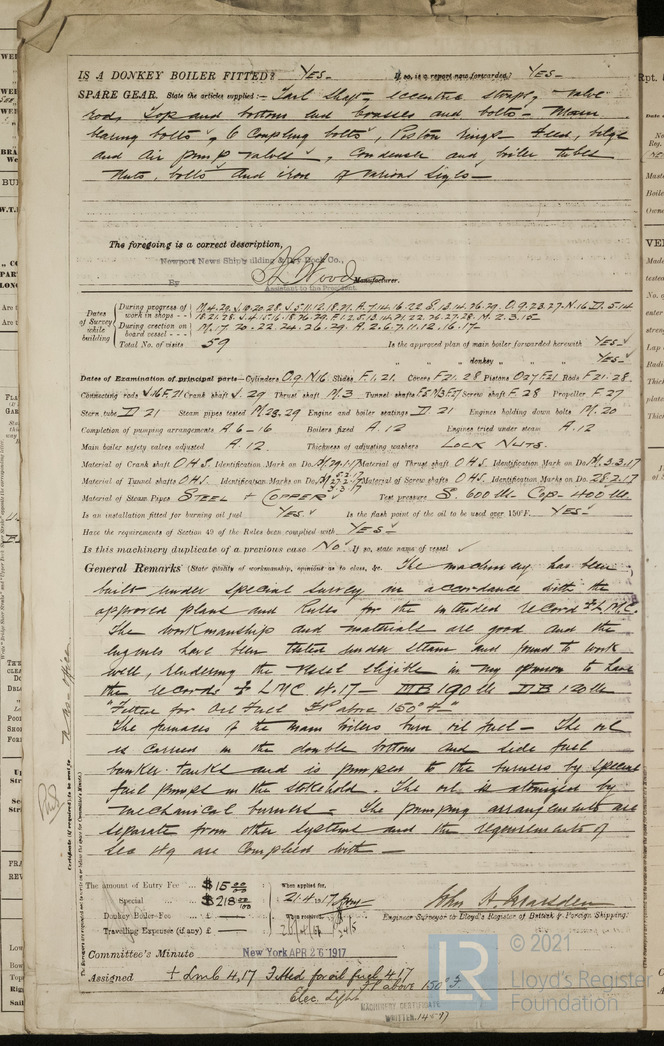 IS A DONKEY BOILER FITTED? YES- If so, is a report now forwarded? YES-
SPARE GEAR. State the articles supplied:- Tail Shaft, eccentric straps, valve
rod, Top and bottom end brasses and bolts - Main
bearing bolts, 6 Coupling bolts, Piston rings Feed, bilge
and Air pump valves, Condenser and boiler tubes
Nuts, bolts and iron of various sizes-
The foregoing is a correct description,
Newport News Shipbuilding & Dry Dock Co.,
By Wood Manufacturer.
Assistant to the President
Dates of Survey while building
During progress of work in shops - -
During erection on board vessel - - -
M.17.20.22.24.26.29. A.2.6.7.11.12.16.17-
Total No. of visits 59 Is the approved plan of main boiler forwarded herewith YES
" " " donkey " " YES
Dates of Examination of principal parts-Cylinders O.9.N.16 Slides F.1.21. Covers F.21.28 Pistons O.27.F.21 Rods F.21.28.
Connecting rods J.16.F.21 Crank shaft J.29 Thrust shaft M.3 Tunnel shafts Screw shaft F.28 Propeller F.27
Stern tube D.21 Steam pipes tested M.28.29 Engine and boiler seatings D.21 Engines holding down bolts M.20
Completion of pumping arrangements A.6-16 Boilers fixed A.12 Engines tried under steam A.12
Main boiler safety valves adjusted A.12. Thickness of adjusting washers LOCK NUTS.
Material of Crank shaft O.H.S. Identification Mark on Do. Material of Thrust shaft O.H.S. Identification Mark on Do. M.3.3.17
Material of Tunnel shafts O.H.S. Identification Mark on Do. Material of Screw shafts O.H.S. Identification Mark on Do. 28.2.17
Material of Steam Pipes STEEL + COPPER Test pressure S. 600 lb. Cop-400 lb.
Is an installation fitted for burning oil fuel YES. Is the flash point of the oil to be used over 150°F. YES-
Have the requirements of Section 49 of the Rules been complied with YES-
Is this machinery duplicate of a previous case NO. If so, state name of vessel
General Remarks (State quality of workmanship, opinions as to class, &c. The machinery has been
built under special survey in accordance with the
approved plans and Rules for the intended record + LMC.
The workmanship and materials are good and the
engines have been tested under steam and found to work
well, rendering the vessel eligible in my opinion to have
the records + LMC 4.17- MB 190 lb DB 120 lb
"Fitted for Oil Fuel F.P. above 150° F-"
The furnaces of the main boilers burn oil fuel- The oil
is carried in the double bottom and side fuel
bunker tanks and is pumped to the burners by special
fuel pumps in the stokehold. The oil is atomized by
mechanical burners- The pumping arrangements are
separate from other systems and the requirements of
Sec 49 are Complied with-
The amount of Entry Fee .. $ 15.00 When applied for,
Special .. .. $ 218.00 21.4.17
Donkey Boiler Fee .. £ When received,
Travelling Expenses (if any) £
John H. Marsden
Engineer Surveyor to Lloyd's Register of British & Foreign Shipping.
Committee's Minute New York APR 26 1917
Assigned + Lmb 4.17 Fitted for oil fuel 4.17
F.P. above 150° F.
Elec. Light
MACHINERY CERTIFICATE
WRITTEN.
© 2021
LR Lloyd's Register
Foundation